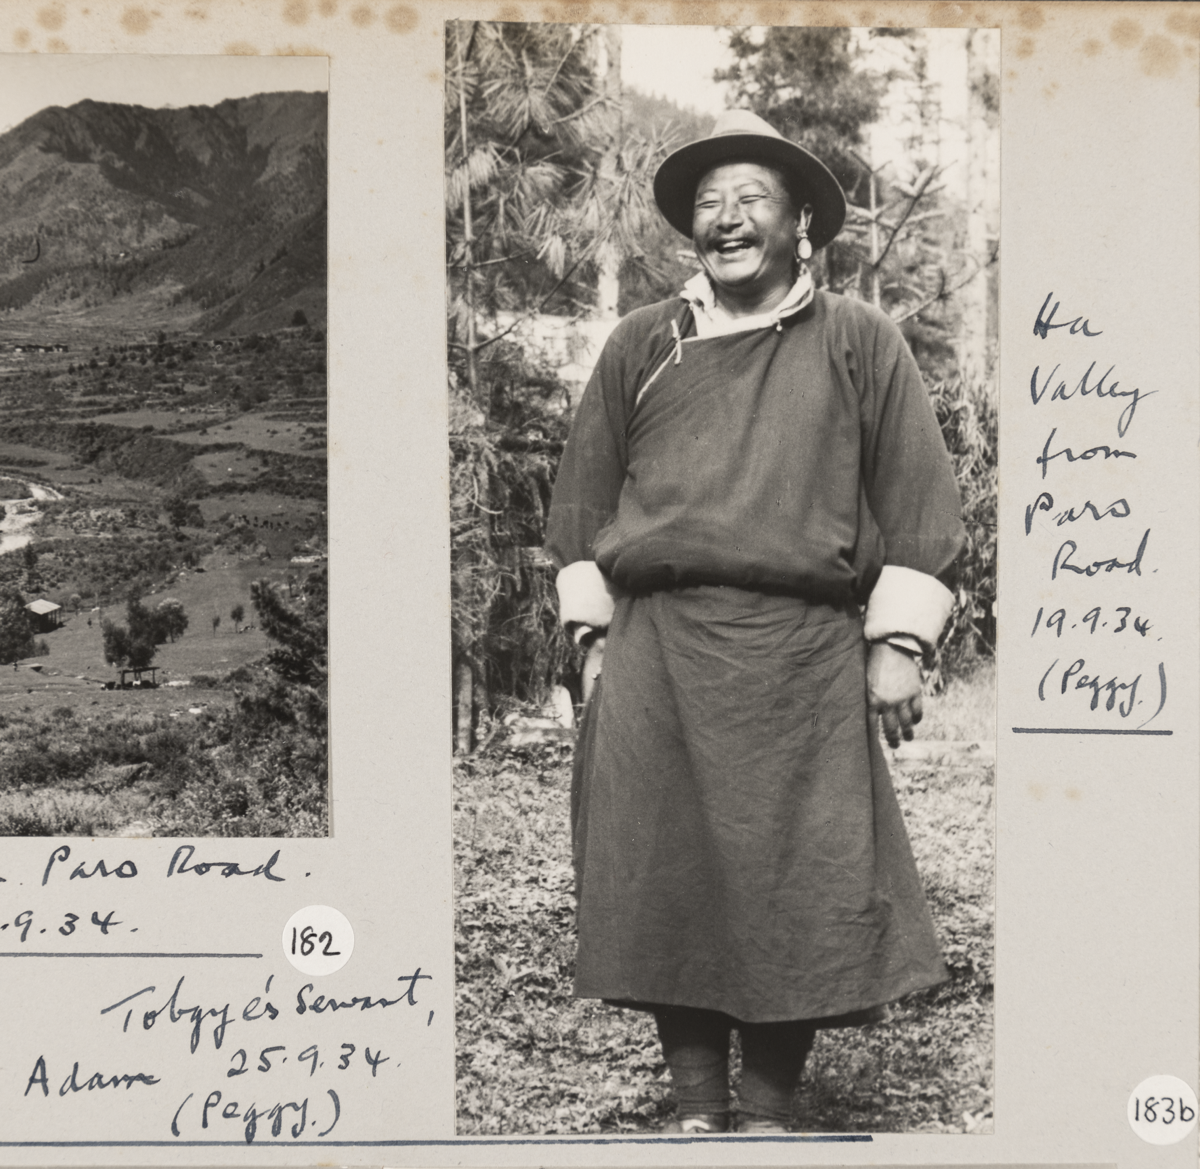 Paro Road.
.9.34.
182
Tobgyé's Servant,
Adam 25.9.34.
(Peggy.)
Ha
Valley
from
Paro
Road.
19.9.34.
(Peggy.)
183b